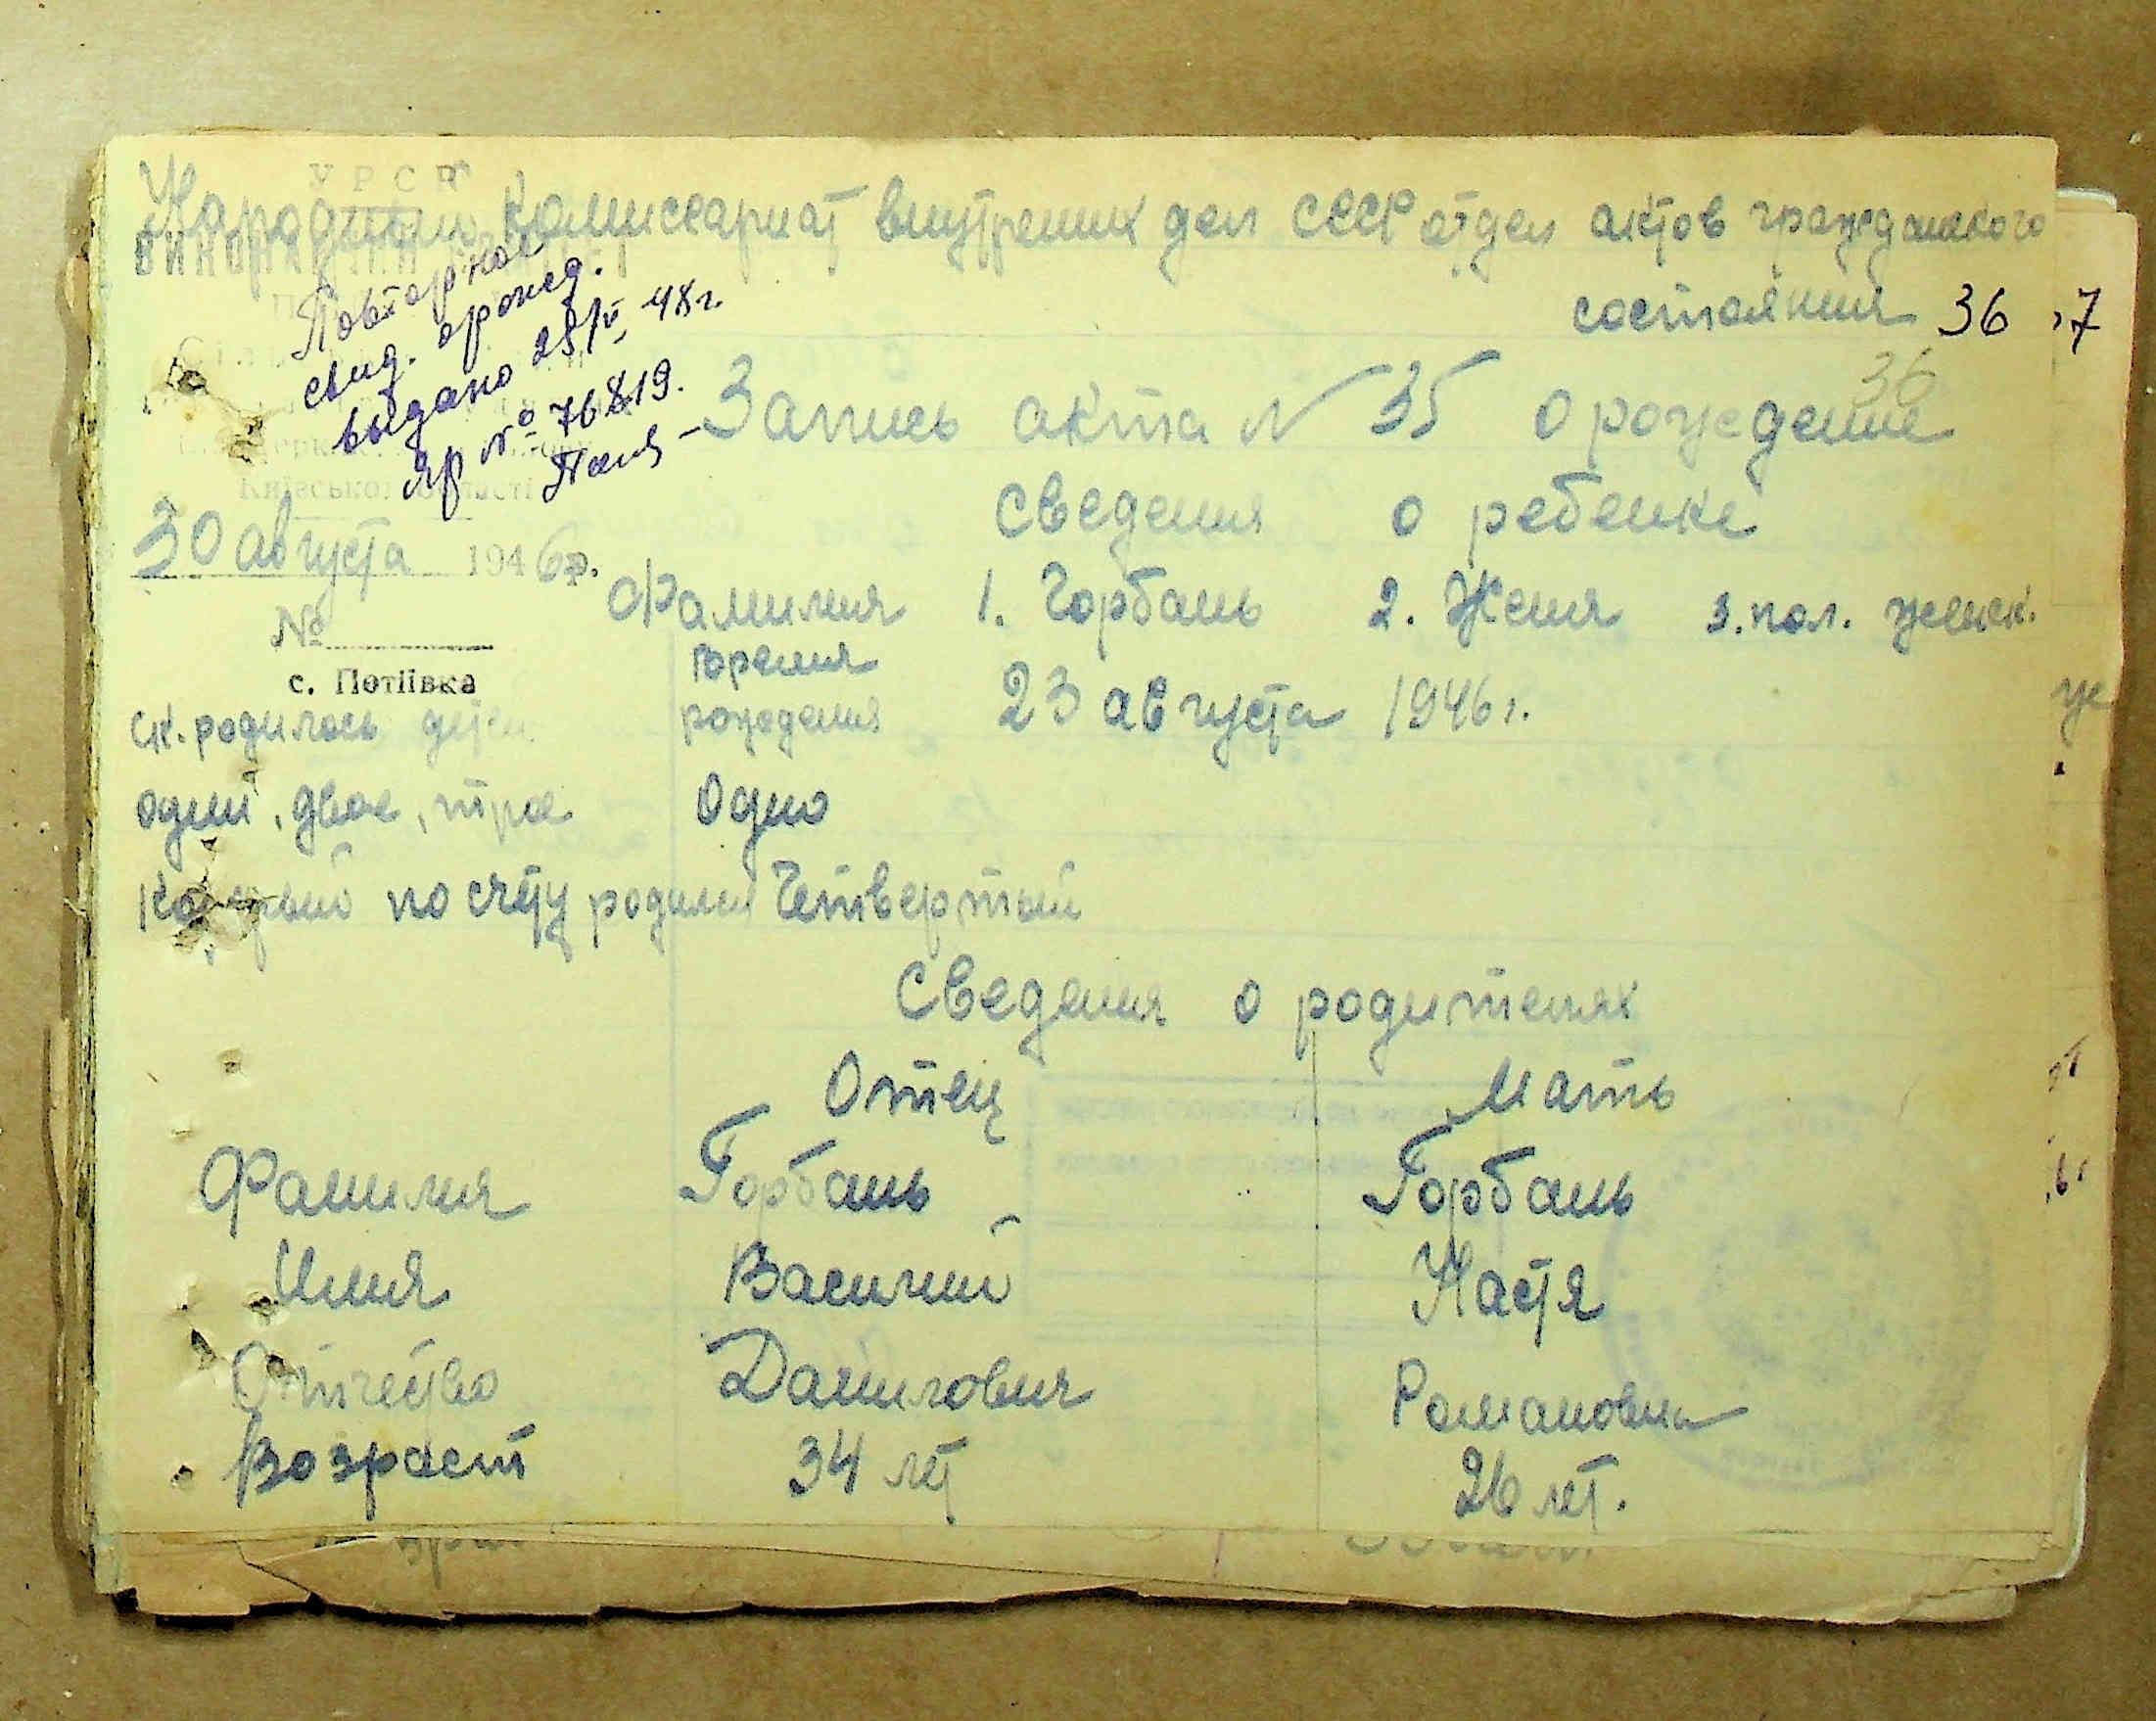 УРСР
Народный Комиссариат внутрених дел СССР отдел актов гражданского
состояния 36
Повторное
свид. орожд.
выдано 25/V 48г.
ЯР № 76819.
36
Запись акта № 35 о рождение
Київської області
Сведения о ребенке
30 августа 1946р.
Фамилия 1. Горбань 2. Женя 3. пол. женск.
№
с. Потіївка
время
рождения 23 августа 1946г.
ск. родилось детей
один, двое, трое Одно
Который по счету родился Четвертый
Сведения о родителях
Отец Мать
Фамилия Горбань Горбань
Имия Василий Настя
Отчество Данилович Романовна
Возраст 34 лет 26 лет.